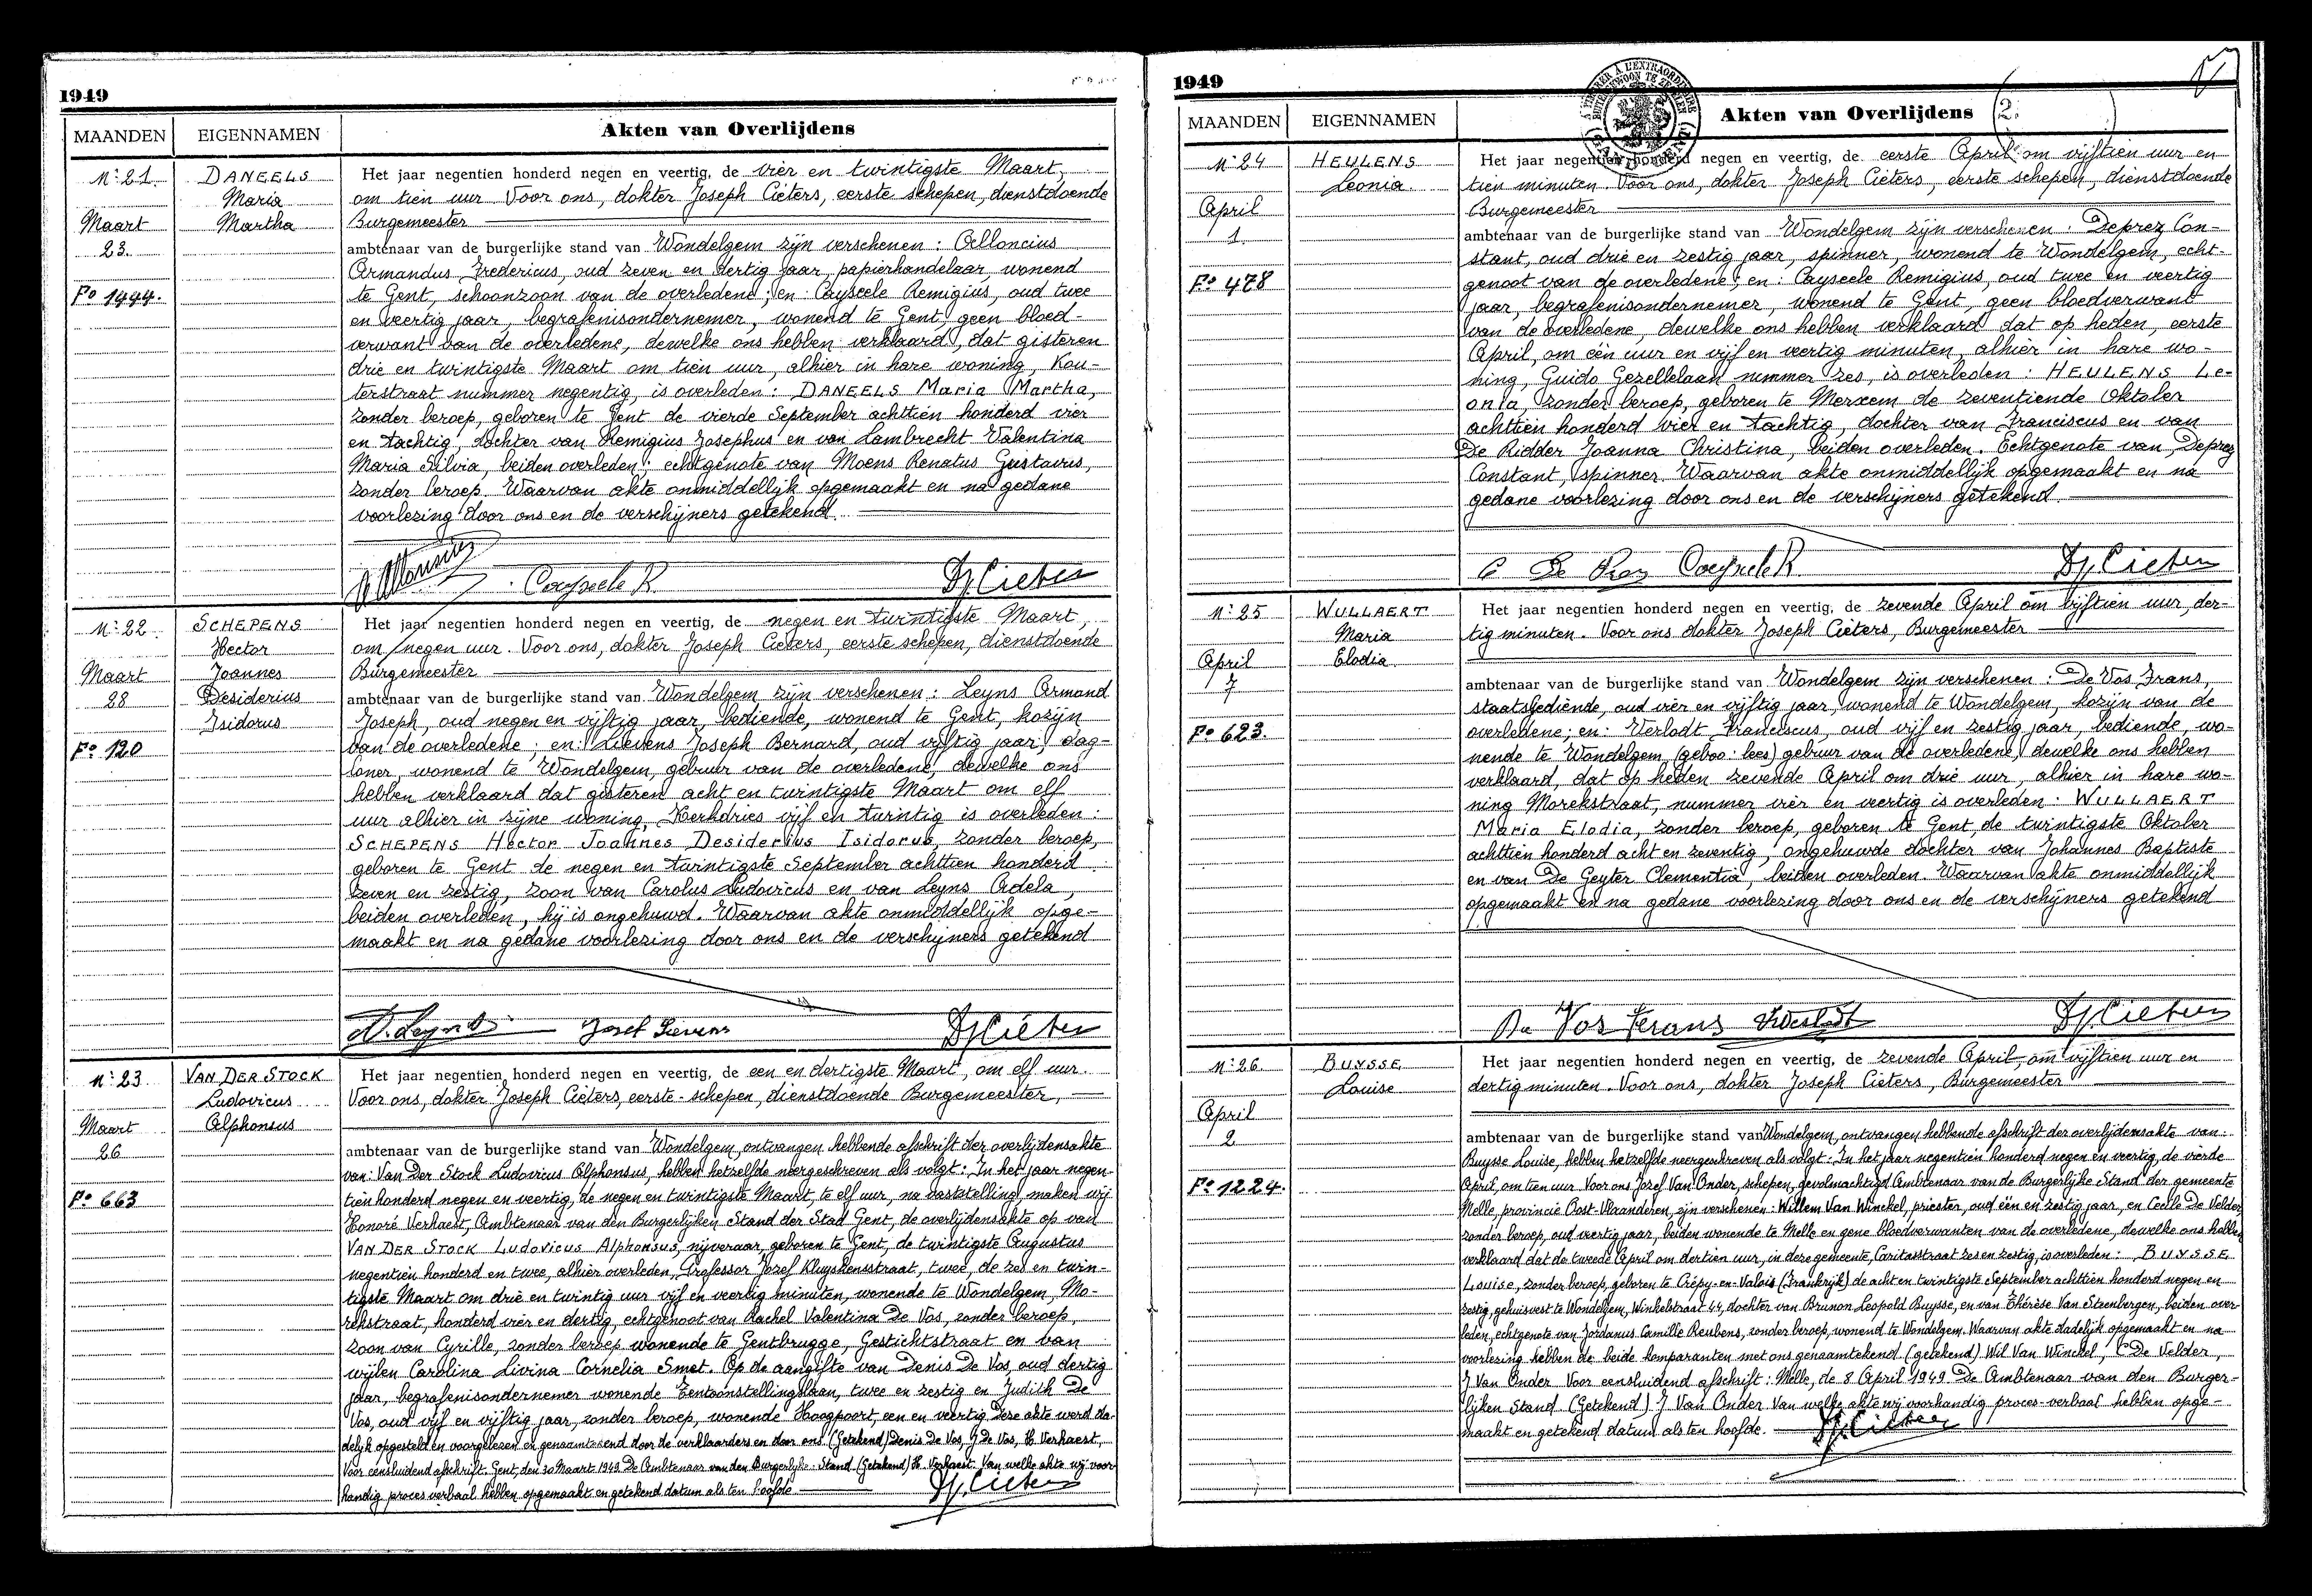 1949
MAANDEN
EIGENNAMEN
Akten van Overlijdens
N° 21.
DANEELS
Maria
Martha
Maart
23.
F° 1444.
Het jaar negentien honderd negen en veertig, de vier en twintigste Maart,
om tien uur Voor ons, dokter Joseph Cieters, eerste schepen, dienstdoende
Burgemeester
ambtenaar van de burgerlijke stand van Wondelgem zijn verschenen : Alloncius
Armandus Fredericus, oud zeven en dertig jaar, papierhandelaar, wonend
te Gent, schoonzoon van de overledene ; en : Cayseele Remigius, oud twee
en veertig jaar, begrafenisondernemer, wonend te Gent, geen bloed-
verwant van de overledene, dewelke ons hebben verklaard, dat gisteren
drie en twintigste Maart om tien uur, alhier in hare woning, Kou-
terstraat nummer negentig, is overleden : DANEELS Maria Martha,
zonder beroep, geboren te Gent de vierde September achttien honderd vier
en tachtig, dochter van Remigius Josephus en van Lambrecht Valentina
Maria Silvia, beiden overleden ; echtgenote van Moens Renatus Gustavus,
zonder beroep. Waarvan akte onmiddellijk opgemaakt en na gedane
voorlezing door ons en de verschijners getekend.
Cayseele R
Dr J. Cieters
N° 22
SCHEPENS
Hector
Joannes
Desiderius
Isidorus
Maart
28
F° 120
Het jaar negentien honderd negen en veertig, de negen en twintigste Maart,
om negen uur. Voor ons, dokter Joseph Cieters, eerste schepen, dienstdoende
Burgemeester
ambtenaar van de burgerlijke stand van Wondelgem zijn verschenen : Leyns Armand
Joseph, oud negen en vijftig jaar, bediende, wonend te Gent, kozijn
van de overledene ; en : Lievens Joseph Bernard, oud vijftig jaar, dag-
loner, wonend te Wondelgem, gebuur van de overledene, dewelke ons
hebben verklaard dat gisteren acht en twintigste Maart om elf
uur alhier in zijne woning, Kerkdries vijf en twintig is overleden :
SCHEPENS Hector Joannes Desiderius Isidorus, zonder beroep,
geboren te Gent de negen en twintigste September achttien honderd
zeven en zestig, zoon van Carolus Ludovicus en van Leyns Adela,
beiden overleden, hij is ongehuwd. Waarvan akte onmiddellijk opge-
maakt en na gedane voorlezing door ons en de verschijners getekend
A. Leyns
Josef Lievens
Dr J. Cieters
N° 23
VAN DER STOCK
Ludovicus
Alphonsus
Maart
26
F° 663
Het jaar negentien honderd negen en veertig, de een en dertigste Maart, om elf uur.
Voor ons, dokter Joseph Cieters, eerste-schepen, dienstdoende Burgemeester,
ambtenaar van de burgerlijke stand van Wondelgem, ontvangen hebbende afschrift der overlijdensakte
van : Van Der Stock Ludovicus Alphonsus, hebben hetzelfde neergeschreven als volgt : In het jaar negen-
tien honderd negen en veertig, de negen en twintigste Maart, te elf uur, na vaststelling, maken wij
Honoré Verhaest, Ambtenaar van den Burgerlijken Stand der Stad Gent, de overlijdensakte op van
VAN DER STOCK Ludovicus Alphonsus, nijveraar, geboren te Gent, de twintigste Augustus
negentien honderd en twee, alhier overleden, Professor Jozef Kluyskensstraat, twee, de zes en twin-
tigste Maart om drie en twintig uur vijf en veertig minuten, wonende te Wondelgem, Mo-
rekstraat, honderd vier en dertig, echtgenoot van Rachel Valentina De Vos, zonder beroep,
zoon van Cyrille, zonder beroep wonende te Gentbrugge, Gestichtstraat en van
wijlen Carolina Livina Cornelia Smet. Op de aangifte van Denis De Vos, oud dertig
jaar, begrafenisondernemer wonende Tentoonstellingslaan, twee en zestig en Judith De
Vos, oud vijf en vijftig jaar, zonder beroep, wonende Hoogpoort, een en veertig Deze akte werd da-
delijk opgesteld en voorgelezen en genaamtekend door de verklaarders en door ons (Getekend) Denis De Vos, J De Vos, H Verhaest,
Voor eensluidend afschrift. Gent, den 30 Maart 1949 De Ambtenaar van den Burgerlijke Stand (Getekend) H. Verhaest. Van welke akte wij voor-
handig proces verbaal hebben opgemaakt en getekend datum als ten hoofde
Dr J. Cieters
1949
MAANDEN
EIGENNAMEN
Akten van Overlijdens
2.
N° 24
HEULENS
Leonia.
April
1
F° 478
Het jaar negentien honderd negen en veertig, de eerste April om vijftien uur en
tien minuten. Voor ons, dokter Joseph Cieters, eerste schepen, dienstdoende
Burgemeester
ambtenaar van de burgerlijke stand van Wondelgem zijn verschenen : Deprez Con-
stant, oud drie en zestig jaar, spinner, wonend te Wondelgem, echt-
genoot van de overledene ; en : Cayseele Remigius, oud twee en veertig
jaar, begrafenisondernemer, wonend te Gent, geen bloedverwant
van de overledene, dewelke ons hebben verklaard dat op heden, eerste
April, om één uur en vijf en veertig minuten, alhier in hare wo-
ning, Guido Gezellelaan nummer zes, is overleden : HEULENS Le-
onia, zonder beroep, geboren te Merxem de zeventiende Oktober
achttien honderd vier en tachtig, dochter van Franciscus en van
De Ridder Joanna Christina, beiden overleden. Echtgenote van Deprez
Constant, spinner. Waarvan akte onmiddellijk opgemaakt en na
gedane voorlezing door ons en de verschijners getekend
C De Prez Cayseele R.
Dr J. Cieters
N° 25
WULLAERT
Maria
Elodia.
April
7
F° 623.
Het jaar negentien honderd negen en veertig, de zevende April om vijftien uur, der-
tig minuten. Voor ons dokter Joseph Cieters, Burgemeester
ambtenaar van de burgerlijke stand van Wondelgem zijn verschenen : De Vos Frans,
staatsbediende, oud vier en vijftig jaar, wonend te Wondelgem, kozijn van de
overledene ; en : Verlodt Franciscus, oud vijf en zestig jaar, bediende, wo-
nende te Wondelgem (geboo : lees) gebuur van de overledene, dewelke ons hebben
verklaard, dat op heden zevende April om drie uur, alhier in hare wo-
ning Morekstraat, nummer vier en veertig is overleden : WULLAERT
Maria Elodia, zonder beroep, geboren te Gent, de twintigste Oktober
achttien honderd acht en zeventig, ongehuwde dochter van Johannes Baptiste
en van De Geyter Clementia, beiden overleden. Waarvan akte onmiddellijk
opgemaakt en na gedane voorlezing door ons en de verschijners getekend
De Vos Frans
Dr J. Cieters
N° 26.
BUYSSE
Louise.
April
2
F° 1224.
Het jaar negentien honderd negen en veertig, de zevende April, om vijftien uur en
dertig minuten. Voor ons, dokter Joseph Cieters, Burgemeester
ambtenaar van de burgerlijke stand van Wondelgem, ontvangen hebbende afschrift der overlijdensakte van :
Buysse Louise, hebben hetzelfde neergeschreven als volgt : In het jaar negentien honderd negen en veertig, de vierde
April, om tien uur Voor ons Jozef Van Onder, schepen, gevolmachtigd Ambtenaar van de Burgerlijke Stand der gemeente
Melle, provincie Oost-Vlaanderen, zijn verschenen : Willem Van Winckel, priester, oud één en zestig jaar, en Cecile De Velder,
zonder beroep, oud veertig jaar, beiden wonende te Melle en gene bloedverwanten van de overledene, dewelke ons hebben
verklaard dat de tweede April om dertien uur, in deze gemeente, Caritasstraat zes en zestig, is overleden : BUYSSE
Louise, zonder beroep, geboren te Crépy-en-Valois (Frankrijk) de acht en twintigste September achttien honderd negen en
zestig, gehuisvest te Wondelgem, Winkelstraat 44, dochter van Brunon Leopold Buysse, en van Thérèse Van Steenbergen, beiden over-
leden, echtgenote van Jordanus Camille Reubens, zonder beroep, wonend te Wondelgem. Waarvan akte dadelijk opgemaakt en na
voorlezing hebben de beide komparanten met ons genaamtekend (getekend) Wil Van Winckel, C De Velder,
J Van Onder Voor eensluidend afschrift : Melle, de 8 April 1949 De Ambtenaar van den Burger-
lijken Stand (Getekend) J Van Onder. Van welke akte wij voorhandig proces-verbaal hebben opge-
maakt en getekend datum als ten hoofde.
Dr J. Cieters